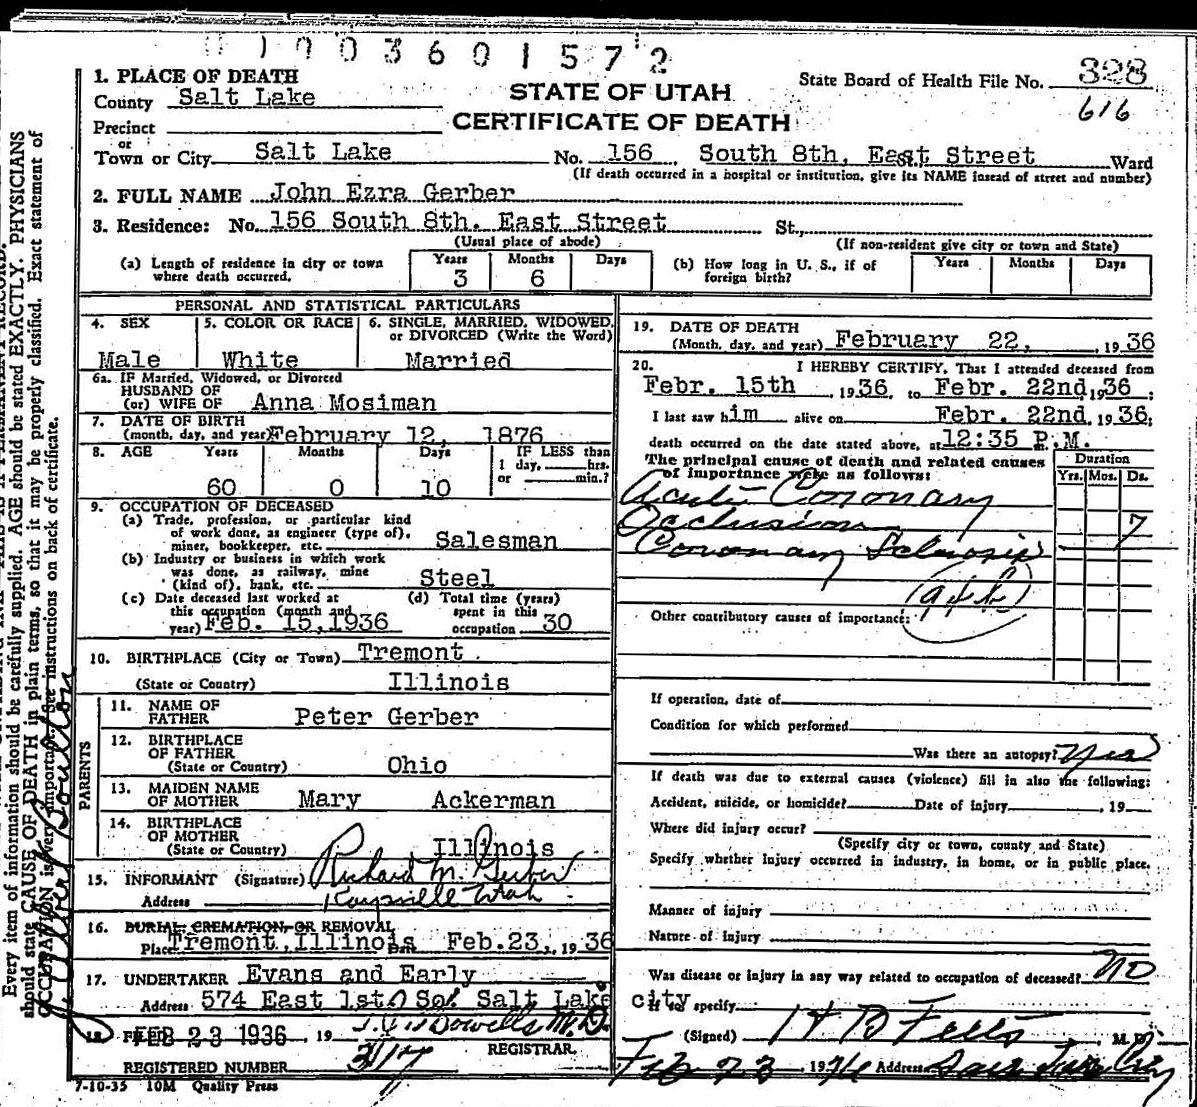 193601572
1. PLACE OF DEATH
County Salt Lake
STATE OF UTAH
State Board of Health File No. 328
616
CERTIFICATE OF DEATH
Precinct
or
Town or City Salt Lake No. 156 South 8th, East Street Ward
(If death occurred in a hospital or institution, give its NAME insead of street and number)
2. FULL NAME John Ezra Gerber
3. Residence: No. 156 South 8th. East Street St.,
(Usual place of abode) (If non-resident give city or town and State)
(a) Length of residence in city or town where death occurred. Years 3 Months 6 Days
(b) How long in U. S., if of foreign birth? Years Months Days
PERSONAL AND STATISTICAL PARTICULARS
4. SEX Male
5. COLOR OR RACE White
6. SINGLE, MARRIED, WIDOWED, or DIVORCED (Write the Word) Married
6a. IF Married, Widowed, or Divorced
HUSBAND OF
(or) WIFE OF Anna Mosiman
7. DATE OF BIRTH
(month, day, and year) February 12, 1876
8. AGE Years 60 Months 0 Days 10
IF LESS than
1 day, hrs.
or min.?
9. OCCUPATION OF DECEASED
(a) Trade, profession, or particular kind
of work done, as engineer (type of),
miner, bookkeeper, etc. Salesman
(b) Industry or business in which work
was done, as railway, mine
(kind of), bank, etc. Steel
(c) Date deceased last worked at
this occupation (month and
year) Feb. 15, 1936
(d) Total time (years)
spent in this
occupation 30
10. BIRTHPLACE (City or Town) Tremont
(State or Country) Illinois
PARENTS
11. NAME OF
FATHER Peter Gerber
12. BIRTHPLACE
OF FATHER
(State or Country) Ohio
13. MAIDEN NAME
OF MOTHER Mary Ackerman
14. BIRTHPLACE
OF MOTHER
(State or Country) Illinois
15. INFORMANT (Signature) Richard M. Gerber
Address Kaysville Utah
16. BURIAL, CREMATION, OR REMOVAL
Place Tremont, Illinois Date Feb. 23, 1936
17. UNDERTAKER Evans and Early
Address 574 East 1st So. Salt Lake city
18. FILED FEB 23 1936 19 Dowells M.D.
REGISTRAR.
REGISTERED NUMBER 317
7-10-35 10M Quality Press
19. DATE OF DEATH
(Month, day, and year) February 22, 1936
20. I HEREBY CERTIFY, That I attended deceased from
Febr. 15th, 1936, to Febr. 22nd, 1936;
I last saw him alive on Febr. 22nd, 1936;
death occurred on the date stated above, at 12:35 P.M.
The principal cause of death and related causes
of importance were as follows:
Duration
Yrs. Mos. Ds.
Acute Coronary
Occlusion 7
Coronary Sclerosis
Other contributory causes of importance:
If operation, date of
Condition for which performed
Was there an autopsy?
If death was due to external causes (violence) fill in also the following:
Accident, suicide, or homicide? Date of injury , 19
Where did injury occur?
(Specify city or town, county and State)
Specify whether injury occurred in industry, in home, or in public place.
Manner of injury
Nature of injury
Was disease or injury in any way related to occupation of deceased? No
If so specify
(Signed) M. D.
Feb 23 1936 Address Salt Lake City
Every item of information should be carefully supplied. AGE should be stated EXACTLY. PHYSICIANS
should state CAUSE OF DEATH in plain terms, so that it may be properly classified. Exact statement of
OCCUPATION is very important. See instructions on back of certificate.